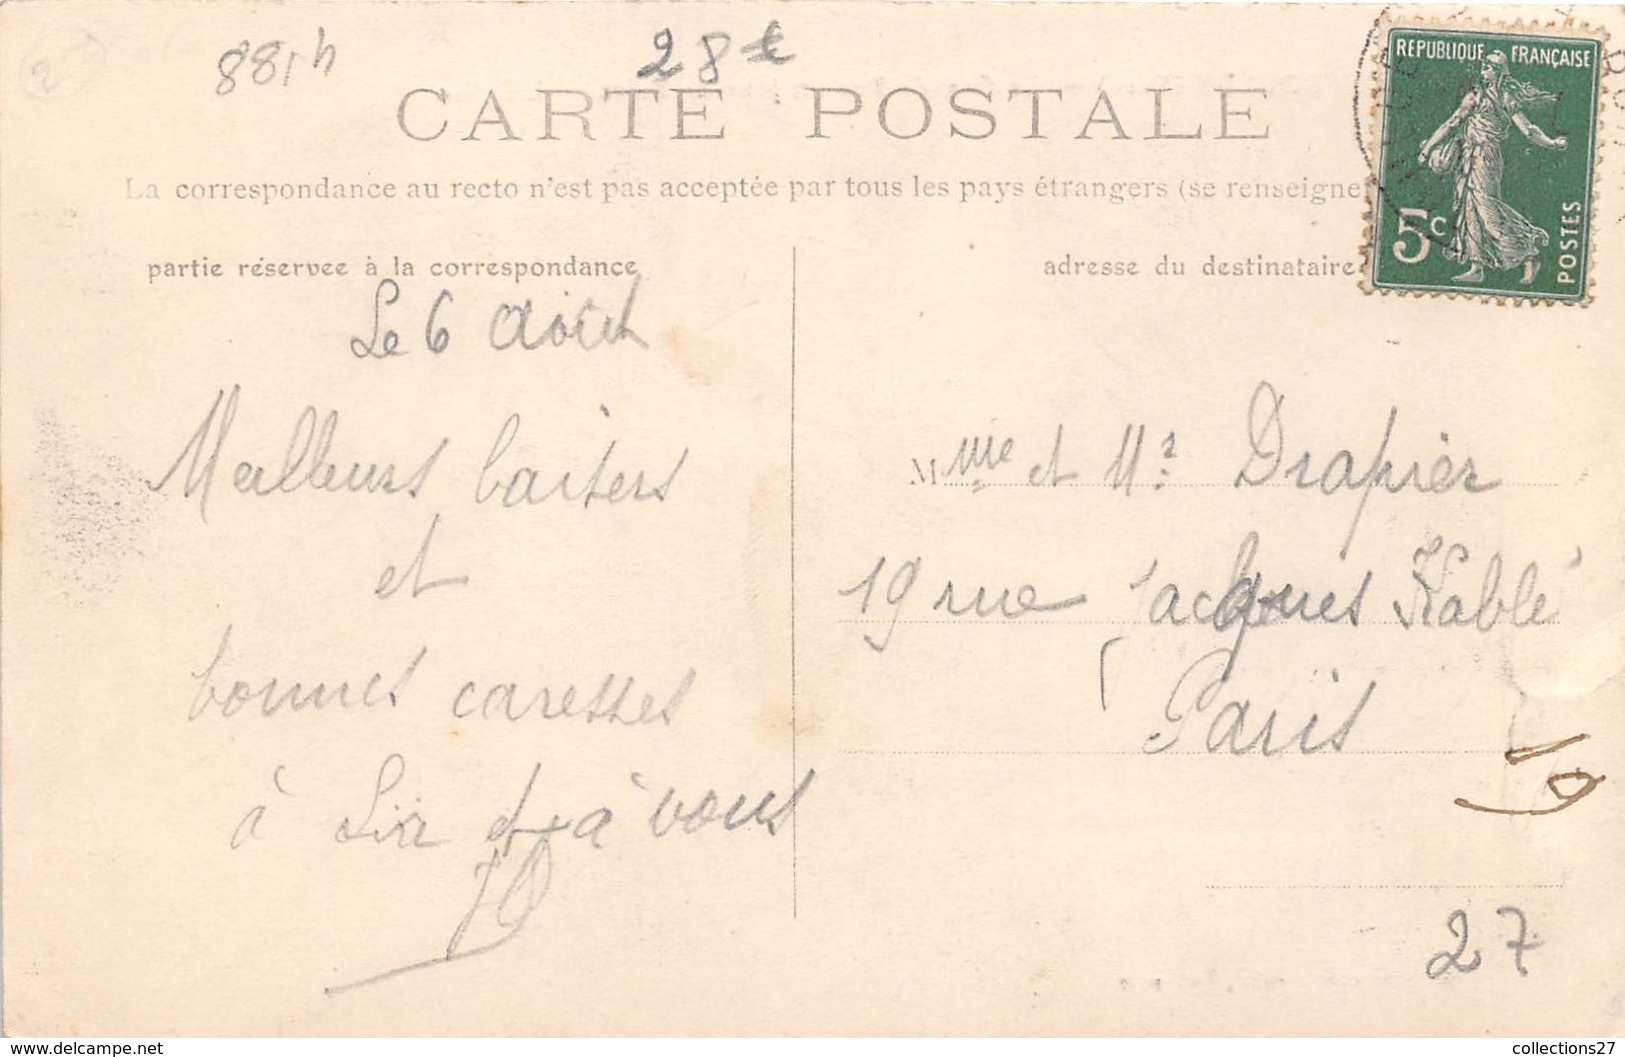 881h
28 €
CARTE POSTALE
La correspondance au recto n'est pas acceptée par tous les pays étrangers (se renseigne
REPUBLIQUE FRANÇAISE
5c
POSTES
partie réservee à la correspondance
Le 6 Aout
Meilleurs baisers
et
bonnes caresses
à et à vous
adresse du destinataire
Mme et Mr Drapier
19 rue Jacques Kablé
Paris
19
27
delcampe.net
collections27